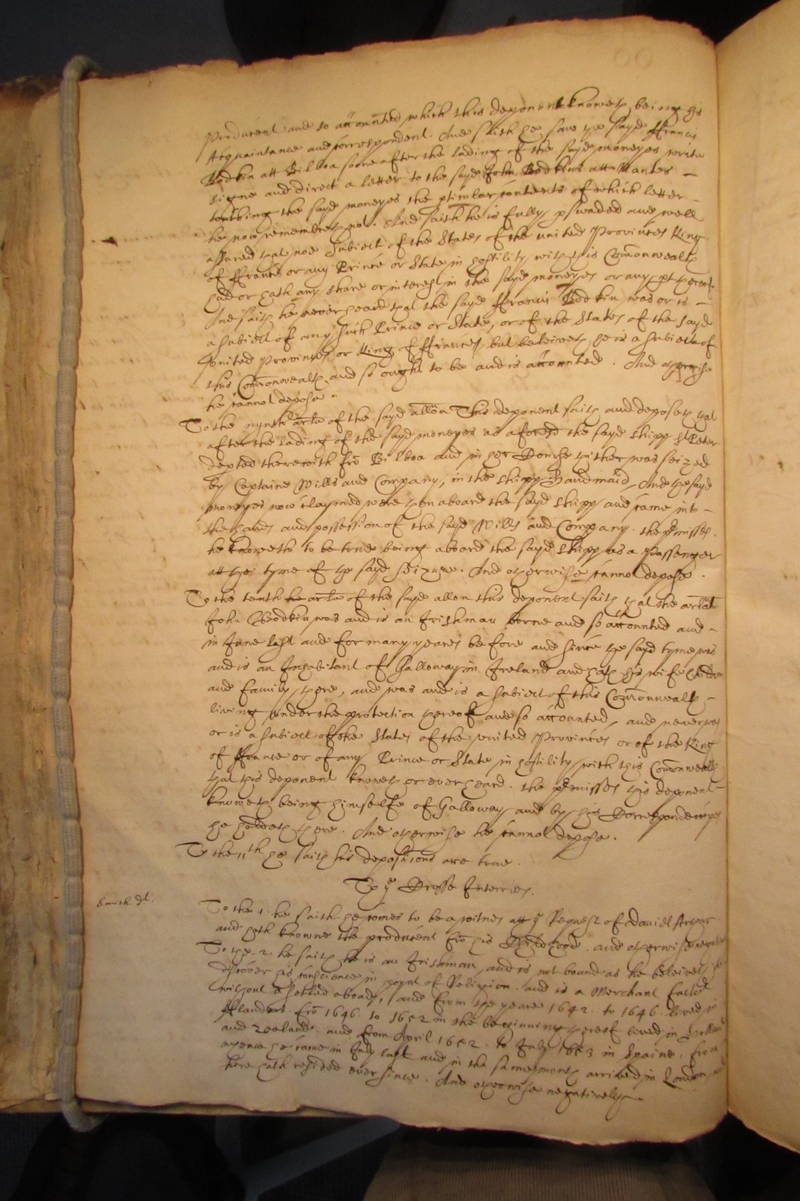 Producent and so accounted which this deponent knoweth being his
Acquaintance and Correspondent. And saith he saw the sayd ffrancis
Bodkin att Bilboa soone after the lading of the sayd moneyes write
signe and direct a letter to the sayd John Bodkin att Nantes -
touching the sayd moneyes the perticular contents of which letter -
he now remembers not. And saith he is fully perswaded and well
assured that noe Subiect of the States of the united Provinces King
of ffrance or any Prince or State in hostility with this Comonwealth
had or hath any share or interest in the sayd moneyes or any part thereof.
And saith he never heard that the sayd ffrancis Bodkin was or is -
a subiect of any such Prince or State, or of the States of the sayd
United Provinces or King of ffrance, but beleiveth he is a subiect of
this Comonwealth and so ought to be and is accounted. And otherwise
he cannot depose.
To the nynth arle of the sayd allon This deponent saith and deposeth that
after the lading of the sayd moneyes as aforesd the sayd shipp St Peter
depted therewith fro Bilboa and in her Course thither was seized
by Captaine Mills and Company, in the shipp Haudmaid, And the sayd
moneyes now claymed were then aboard the sayd shipp and came into -
the hands and possession of the sayd Mills and Company. the premisses
he knoweth to be true being aboard the sayd shipp as a passenger
att the tyme of the sayd seizure. And otherwise cannot depose.
To the tenth arle of the sayd allon this deponent saith that the arlate
John Bodkin was and is an Irishman borne and so accounted and -
in June last and for many yeares before and since the sayd tyme was
and is an Inhabitant of Galloway in Ireland and hath his wife Children
and family there, and was and is a subiect of this Comonwealth -
living under the protection thereof and so accounted, and never was
or is a subiect of the States of the united Provinces or of the King
of ffrance or of any Prince or State in hostility with this Comonwealth
that this deponent knoweth or ever heard. the premisses this deponent -
knoweth being himselfe of Galloway and by the Correspondencyes
he holdeth there. And otherwise he cannot depose.
To the 11th he saith his depositions are true.
To ye Crosse Interries.
To the 1. he saith he comes to be a witnes att ye Request of Daniel
and hath knowne the producent fro his Childhood. and otherwise
To the 2. he saith he is an Irishman, and is not bound as he beleives to
discover his conscience in poynt of Religion. and is a Merchant
without settled aboad, and from the yeare 1642. to 1646. lived in
fflanders. fro 1646. to 1652 in the beginning thereof lived in Holland
and Zealand, and from Aprill 1652. to July 1653 in Spaine. from
whence he came in July last and in the same month arrived in London
here hath resided ever since. And otherwise negatively.